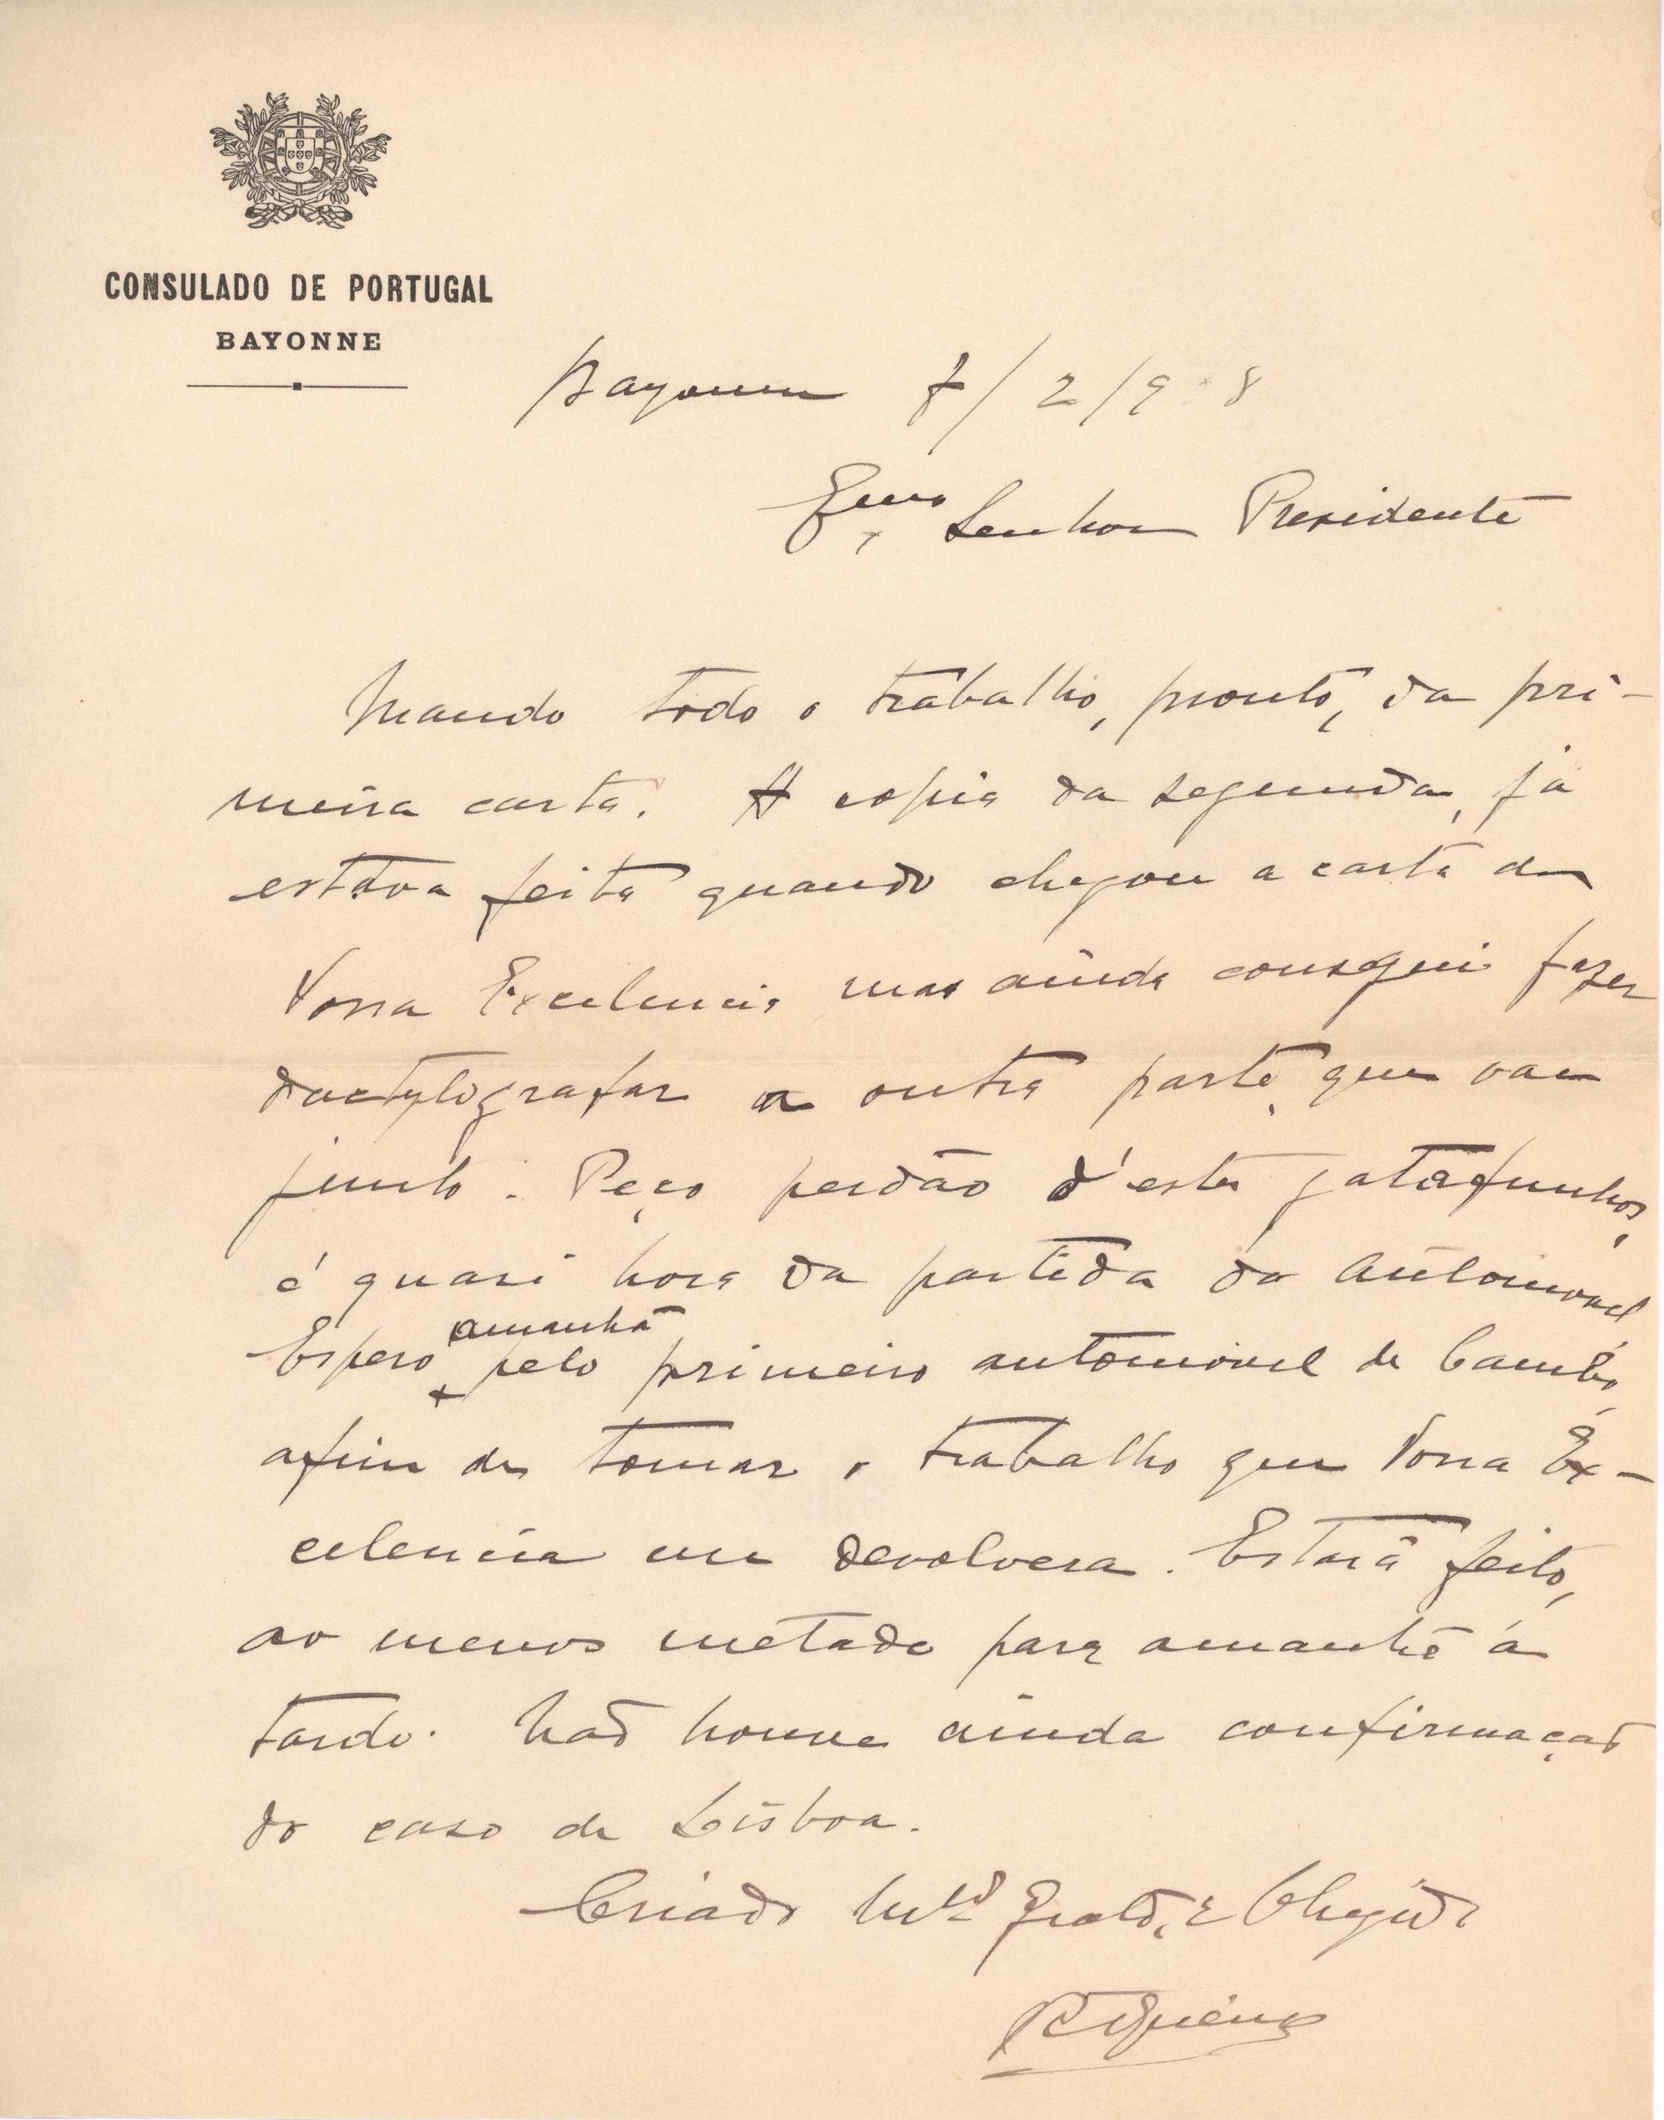 CONSULADO DE PORTUGAL
BAYONNE
Bayonne 8/2/9 8
Exmo Senhor Presidente
Mando todo o trabalho, pronto, da pri-
meira carta. A copia da segunda, já
estava feita quando chegou a carta de
Vossa Excelencia mas ainda consegui fazer
dactylografar a outra parte, que vae
junto. Peço perdão d'estes gatafunhos,
é quasi hora da partida do automovel
Espero amanhã pelo primeiro automovel de Cambo,
afim de tomar o trabalho que Vossa Ex-
celencia me devolvera. Estará feito,
ao menos metade para amanhã á
tarde. Não houve ainda confirmação
do caso de Lisboa.
Criado Mto Grato, e Obrigado